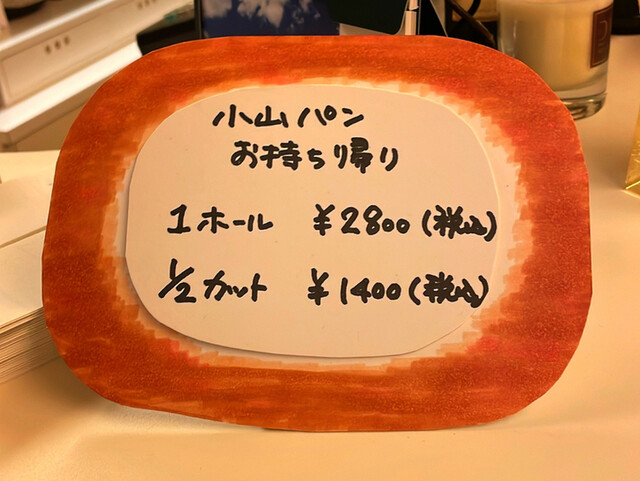 小山パン
お持ち帰り
1ホール ¥2800(税込)
1/2カット ¥1400(税込)